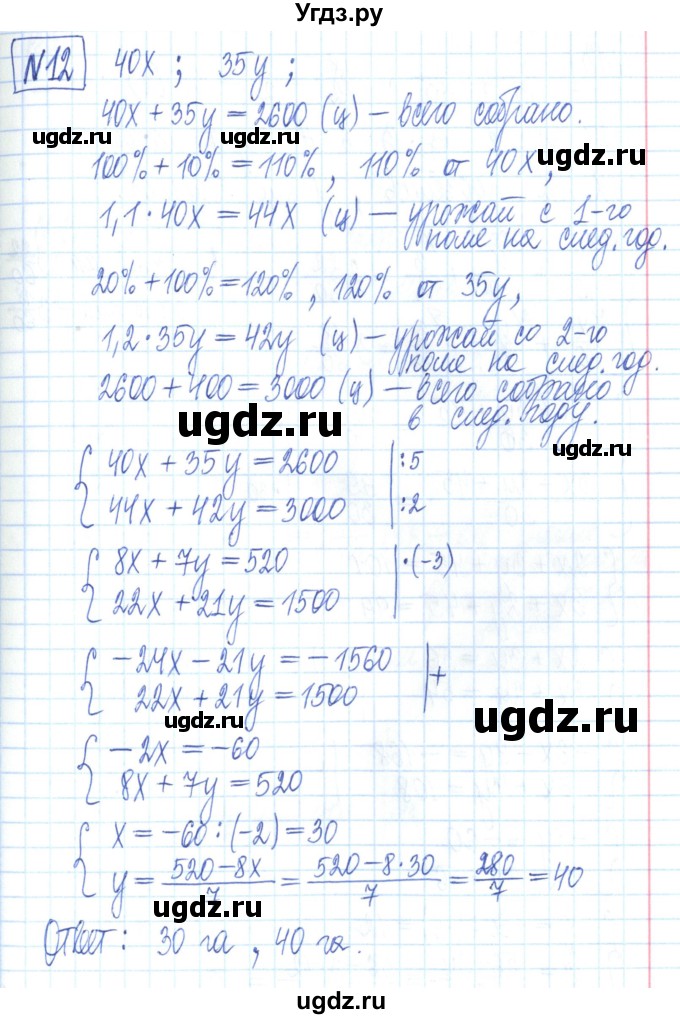 Угдз.ру
№12 40x ; 35y ;
40x + 35y = 2600 (ц) – всего собрано.
ugdz.ru ugdz.ru
100% + 10% = 110% , 110% от 40x,
ugdz.ru
1,1 · 40x = 44x (ц) — урожай с 1-го
поле на след. год.
20% + 100% = 120% , 120% от 35y,
1,2 · 35y = 42y (ц) – урожай со 2-го
поле на след. год.
2600 + 400 = 3000 (ц) – всего собрано
ugdz.ru
в след. году.
40x + 35y = 2600 | :5
ugdz.ru
44x + 42y = 3000 | :2
8x + 7y = 520 | ·(-3)
22x + 21y = 1500
-24x - 21y = -1560 | +
22x + 21y = 1500
ugdz.ru ugdz.ru
-2x = -60
8x + 7y = 520
x = -60 : (-2) = 30
y = 520-8x/7 = 520-8·30/7 = 280/7 = 40
ugdz.ru
Ответ: 30 га , 40 га.
ugdz.ru
ugdz.ru